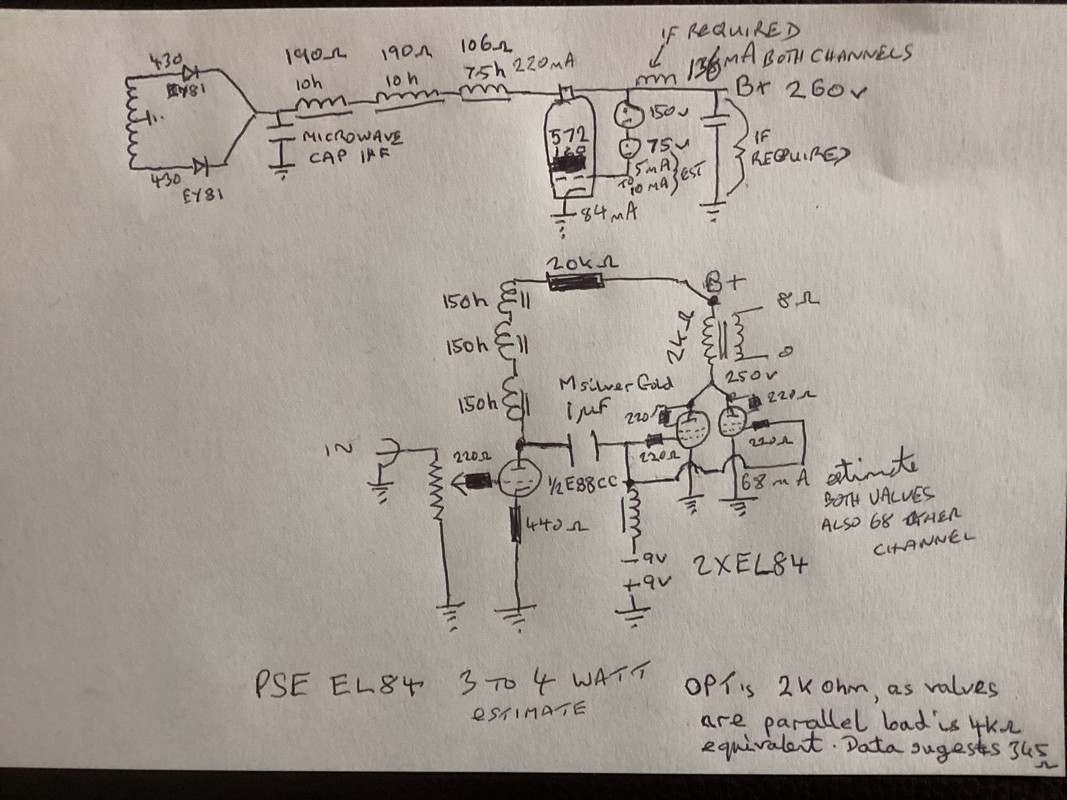 430
EY81
190Ω
10h
190Ω
10h
106Ω
7.5h
220mA
IF REQUIRED
136mA BOTH CHANNELS
B+ 260v
MICROWAVE
CAP 1µF
430
EY81
572
150v
75v
5mA
TO 10mA
EST
IF
REQUIRED
84mA
20kΩ
B+
8Ω
0
2kΩ
250v
150h
150h
150h
M silver Gold
1µF
220Ω
220Ω
220Ω
220Ω
IN
220Ω
½E88CC
440Ω
68mA
estimate
BOTH VALVES
ALSO 68 OTHER
CHANNEL
-9v
+9v
2XEL84
PSE EL84 3 TO 4 WATT
ESTIMATE
OPT is 2K Ohm, as valves
are parallel load is 4kΩ
equivalent. Data sugests 345
Ω